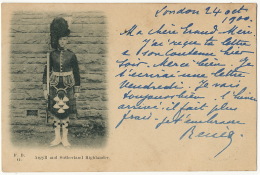 London 24 oct
1900.
Ma chère Grand Mère
J'ai reçu ta lettre
son contenu hier
soir. Merci bien. Je
t'écrirai une lettre
vendredi. Je vais
toujours bien. L'hiver
arrive il fait plus
froid. Je t'embrasse
Renée
F. F.
Argyll and Sutherland Highlander.